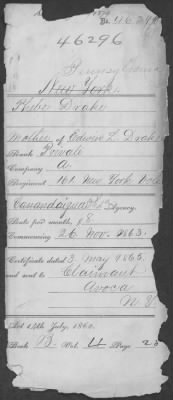 46296
Pennsylvania
New York
Phebe Drake
Mother of Edwin L. Drake
Rank Private
Company A,
Regiment 161 New York Vols
Canandaigua Agency.
Rate per month, $8
Commencing 26 Nov. 1863.
Certificate dated 3. May 1865.
and sent to Claimant
Avoca
N. Y.
Act 14th July, 1862.
Book B Vol. 4 Page 23